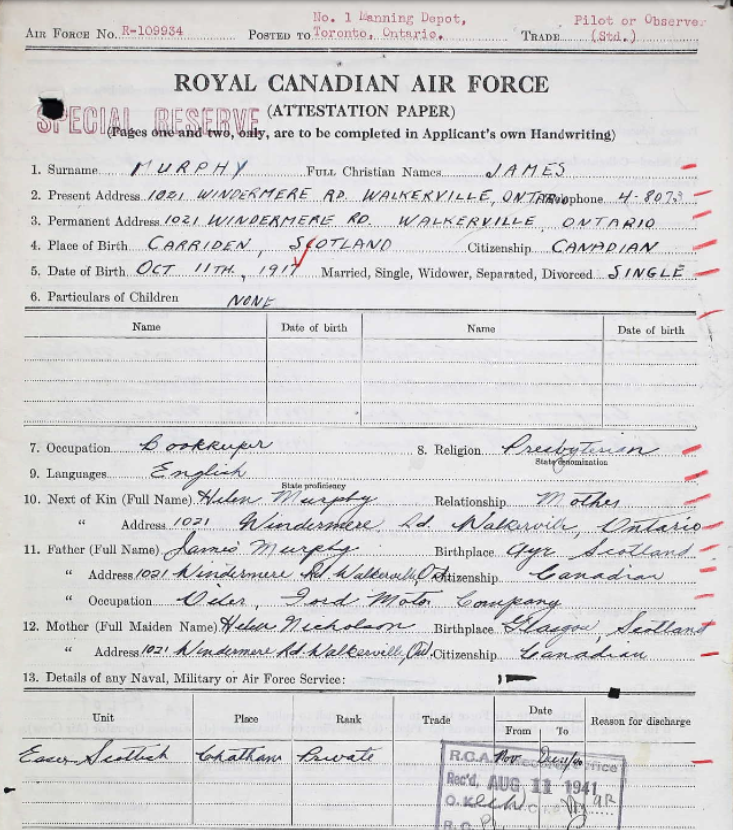 No. 1 Manning Depot, Pilot or Observer
AIR FORCE No. R-109934 POSTED TO Toronto, Ontario. TRADE (Std.)
ROYAL CANADIAN AIR FORCE
SPECIAL RESERVE (ATTESTATION PAPER)
(Pages one and two, only, are to be completed in Applicant's own Handwriting)
1. Surname MURPHY FULL CHRISTIAN NAMES JAMES
2. Present Address 1021 WINDERMERE RD. WALKERVILLE, ONTARIO Telephone 4-8073
3. Permanent Address 1021 WINDERMERE RD. WALKERVILLE, ONTARIO
4. Place of Birth CARRIDEN, SCOTLAND Citizenship CANADIAN
5. Date of Birth OCT 11TH, 1917 Married, Single, Widower, Separated, Divorced SINGLE
6. Particulars of Children NONE
Name Date of birth Name Date of birth
7. Occupation Bookkeeper 8. Religion Presbyterian
State denomination
9. Languages English
State proficiency
10. Next of Kin (Full Name) Helen Murphy Relationship Mother
" Address 1021 Windermere Rd. Walkerville, Ontario
11. Father (Full Name) James Murphy Birthplace Ayr Scotland
" Address 1021 Windermere Rd Walkerville, Ont. Citizenship Canadian
" Occupation Oiler, Ford Motor Company
12. Mother (Full Maiden Name) Helen Nicholson Birthplace Glasgow, Scotland
" Address 1021 Windermere Rd Walkerville, Ont. Citizenship Canadian
13. Details of any Naval, Military or Air Force Service:
Unit Place Rank Trade Date Reason for discharge
From To
Essex Scottish Chatham Private Nov. Dec/40
R.C.A.F.
Rec'd, AUG 11 1941
O.K.
R.C.